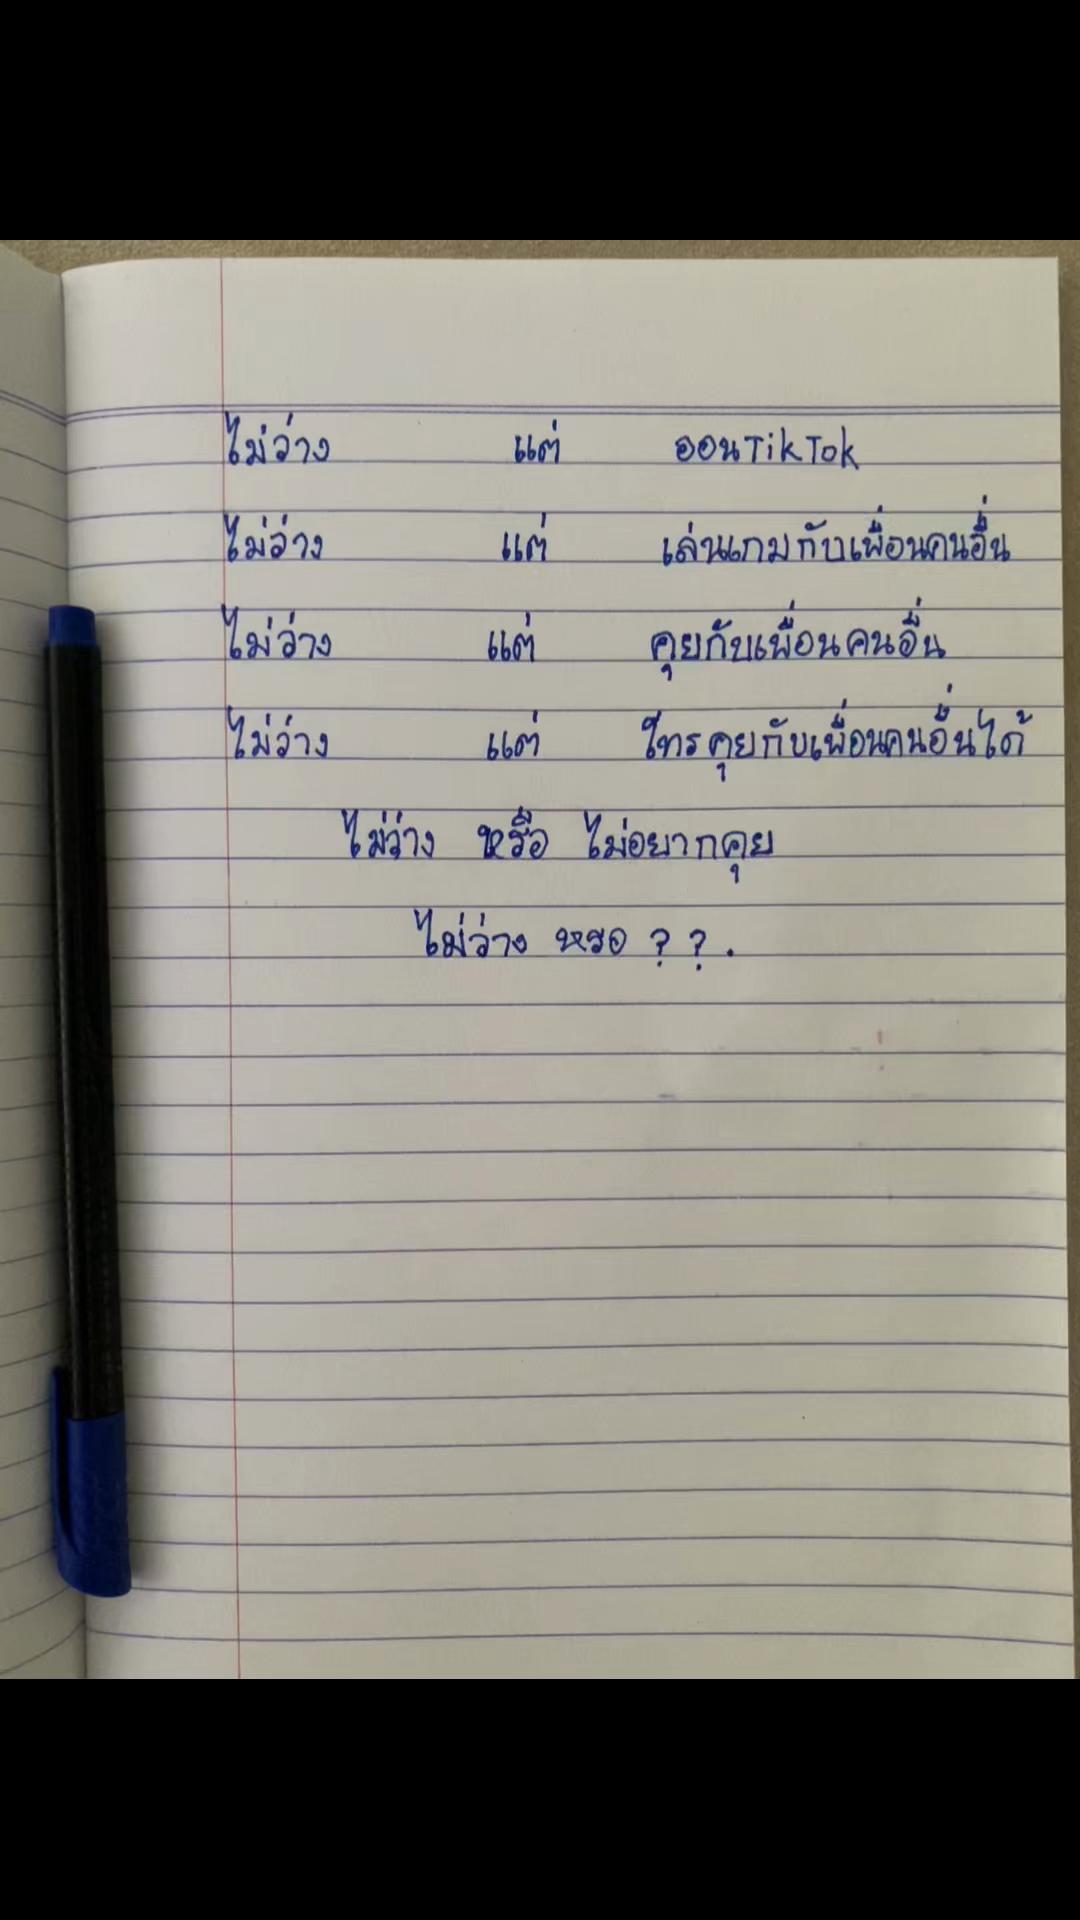 ไม่ว่าง แต่ ออนTikTok
ไม่ว่าง แต่ เล่นเกมกับเพื่อนคนอื่น
ไม่ว่าง แต่ คุยกับเพื่อนคนอื่น
ไม่ว่าง แต่ โทรคุยกับเพื่อนคนอื่นได้
ไม่ว่าง หรือ ไม่อยากคุย
ไม่ว่าง หรอ ? ? .